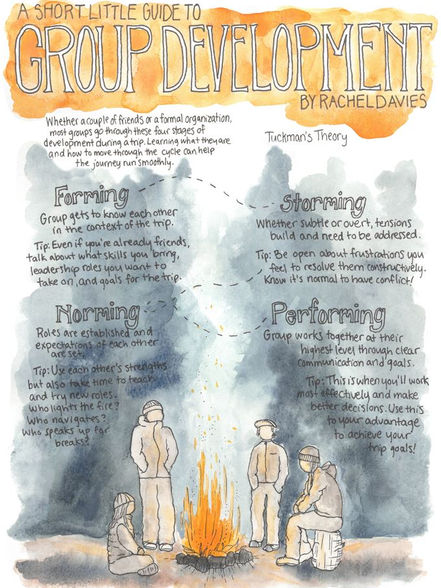 A SHORT LITTLE GUIDE TO
GROUP DEVELOPMENT
BY RACHEL DAVIES
Whether a couple of friends or a formal organization,
most groups go through these four stages of
development during a trip. Learning what they are
and how to move through the cycle can help
the journey run smoothly.
Tuckman's Theory
Forming
Group gets to know each other
in the context of the trip.
Tip: Even if you're already friends,
talk about what skills you bring,
leadership roles you want to
take on, and goals for the trip.
Storming
Whether subtle or overt, tensions
build and need to be addressed.
Tip: Be open about frustrations you
feel to resolve them constructively.
Know it's normal to have conflict!
Norming
Roles are established and
expectations of each other
are set.
Tip: Use each other's strengths
but also take time to teach
and try new roles.
Who lights the fire?
Who navigates?
Who speaks up for
breaks?
Performing
Group works together at their
highest level through clear
communication and goals.
Tip: This is when you'll work
most effectively and make
better decisions. Use this
to your advantage
to achieve your
trip goals!